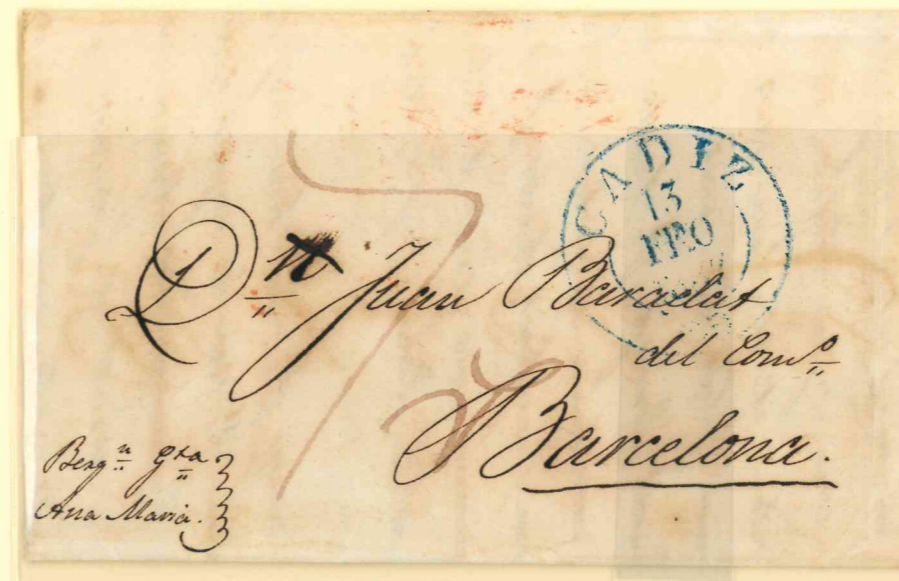 CADIZ
13
ENO
Dn Juan Baradat
del Como
Barcelona.
Bergn Gta
Ana Maria.